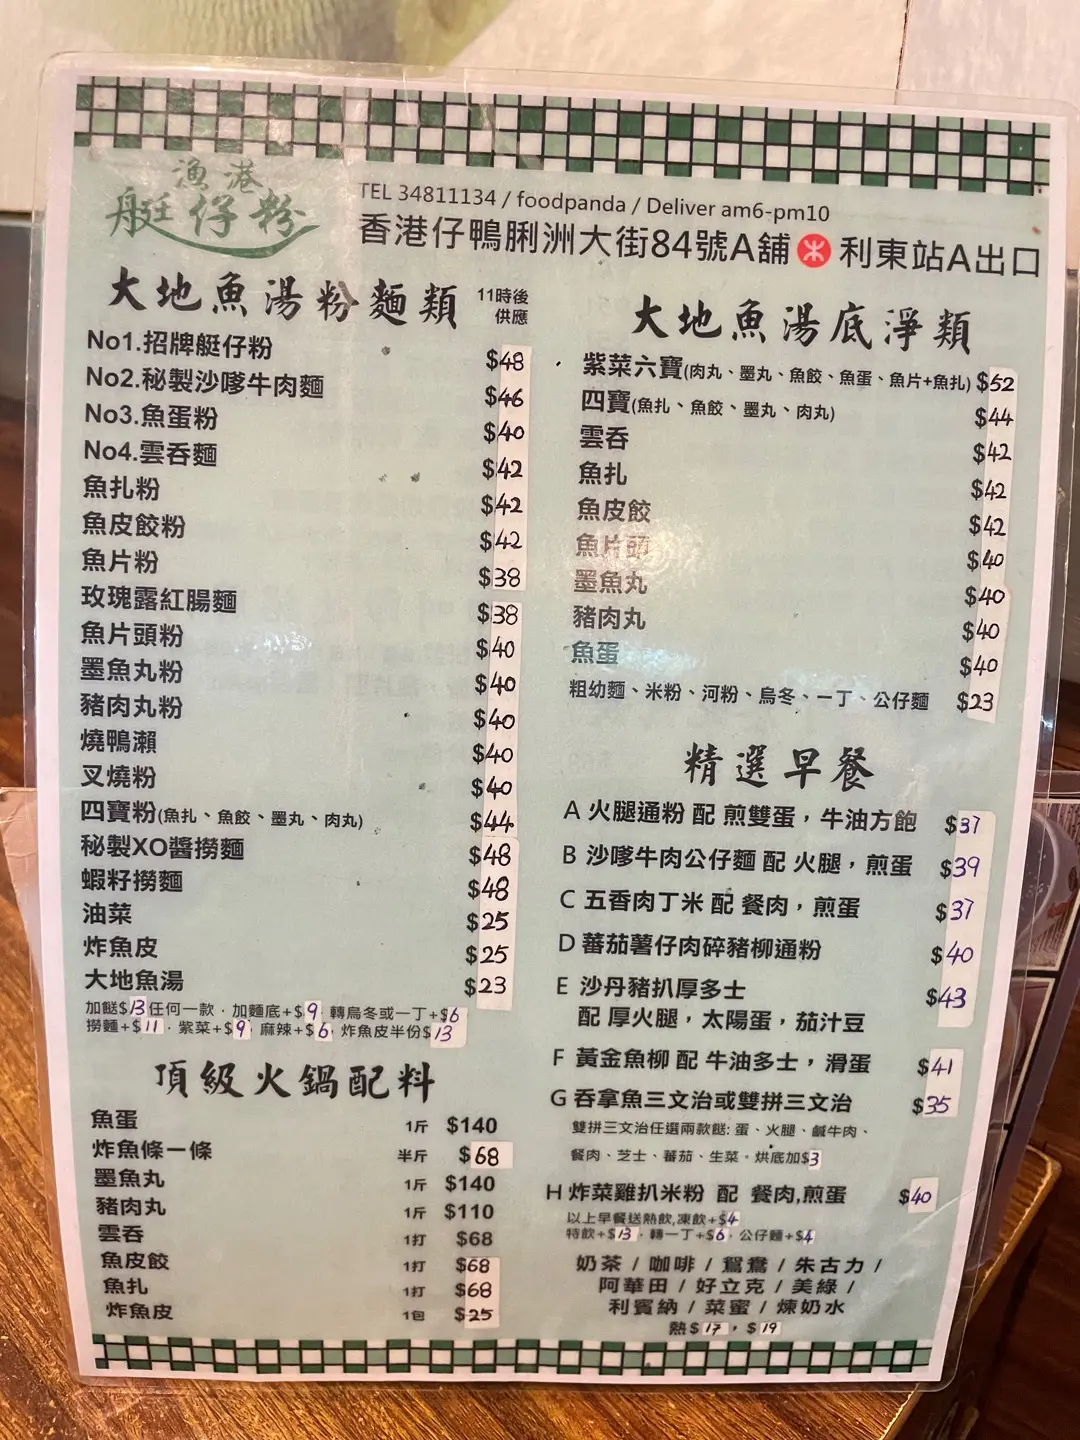 漁港
艇仔粉
TEL 34811134 / foodpanda / Deliver am6-pm10
香港仔鴨脷洲大街84號A舖 利東站A出口
大地魚湯粉麵類 11時後供應
No1.招牌艇仔粉 $48
No2.秘製沙嗲牛肉麵 $46
No3.魚蛋粉 $40
No4.雲吞麵 $42
魚扎粉 $42
魚皮餃粉 $42
魚片粉 $38
玫瑰露紅腸麵 $38
魚片頭粉 $40
墨魚丸粉 $40
豬肉丸粉 $40
燒鴨瀨 $40
叉燒粉 $40
四寶粉(魚扎、魚餃、墨丸、肉丸) $44
秘製XO醬撈麵 $48
蝦籽撈麵 $48
油菜 $25
炸魚皮 $25
大地魚湯 $23
加餸$13任何一款．加麵底+$9．轉烏冬或一丁+$6
撈麵+$11．紫菜+$9．麻辣+$6．炸魚皮半份$13
頂級火鍋配料
魚蛋 1斤 $140
炸魚條一條 半斤 $68
墨魚丸 1斤 $140
豬肉丸 1斤 $110
雲吞 1打 $68
魚皮餃 1打 $68
魚扎 1打 $68
炸魚皮 1包 $25
大地魚湯底淨類
紫菜六寶(肉丸、墨丸、魚餃、魚蛋、魚片+魚扎) $52
四寶(魚扎、魚餃、墨丸、肉丸) $44
雲吞 $42
魚扎 $42
魚皮餃 $42
魚片頭 $40
墨魚丸 $40
豬肉丸 $40
魚蛋 $40
粗幼麵、米粉、河粉、烏冬、一丁、公仔麵 $23
精選早餐
A 火腿通粉 配 煎雙蛋，牛油方飽 $37
B 沙嗲牛肉公仔麵 配 火腿，煎蛋 $39
C 五香肉丁米 配 餐肉，煎蛋 $37
D 蕃茄薯仔肉碎豬柳通粉 $40
E 沙丹豬扒厚多士 $43
配 厚火腿，太陽蛋，茄汁豆
F 黃金魚柳 配 牛油多士，滑蛋 $41
G 吞拿魚三文治或雙拼三文治 $35
雙拼三文治任選兩款餸: 蛋、火腿、鹹牛肉、
餐肉、芝士、蕃茄、生菜。烘底加$3
H 炸菜雞扒米粉 配 餐肉,煎蛋 $40
以上早餐送熱飲,凍飲+$4
特飲+$13．轉一丁+$6．公仔麵+$4
奶茶 / 咖啡 / 鴛鴦 / 朱古力 /
阿華田 / 好立克 / 美綠 /
利賓納 / 菜蜜 / 煉奶水
熱$17，$19